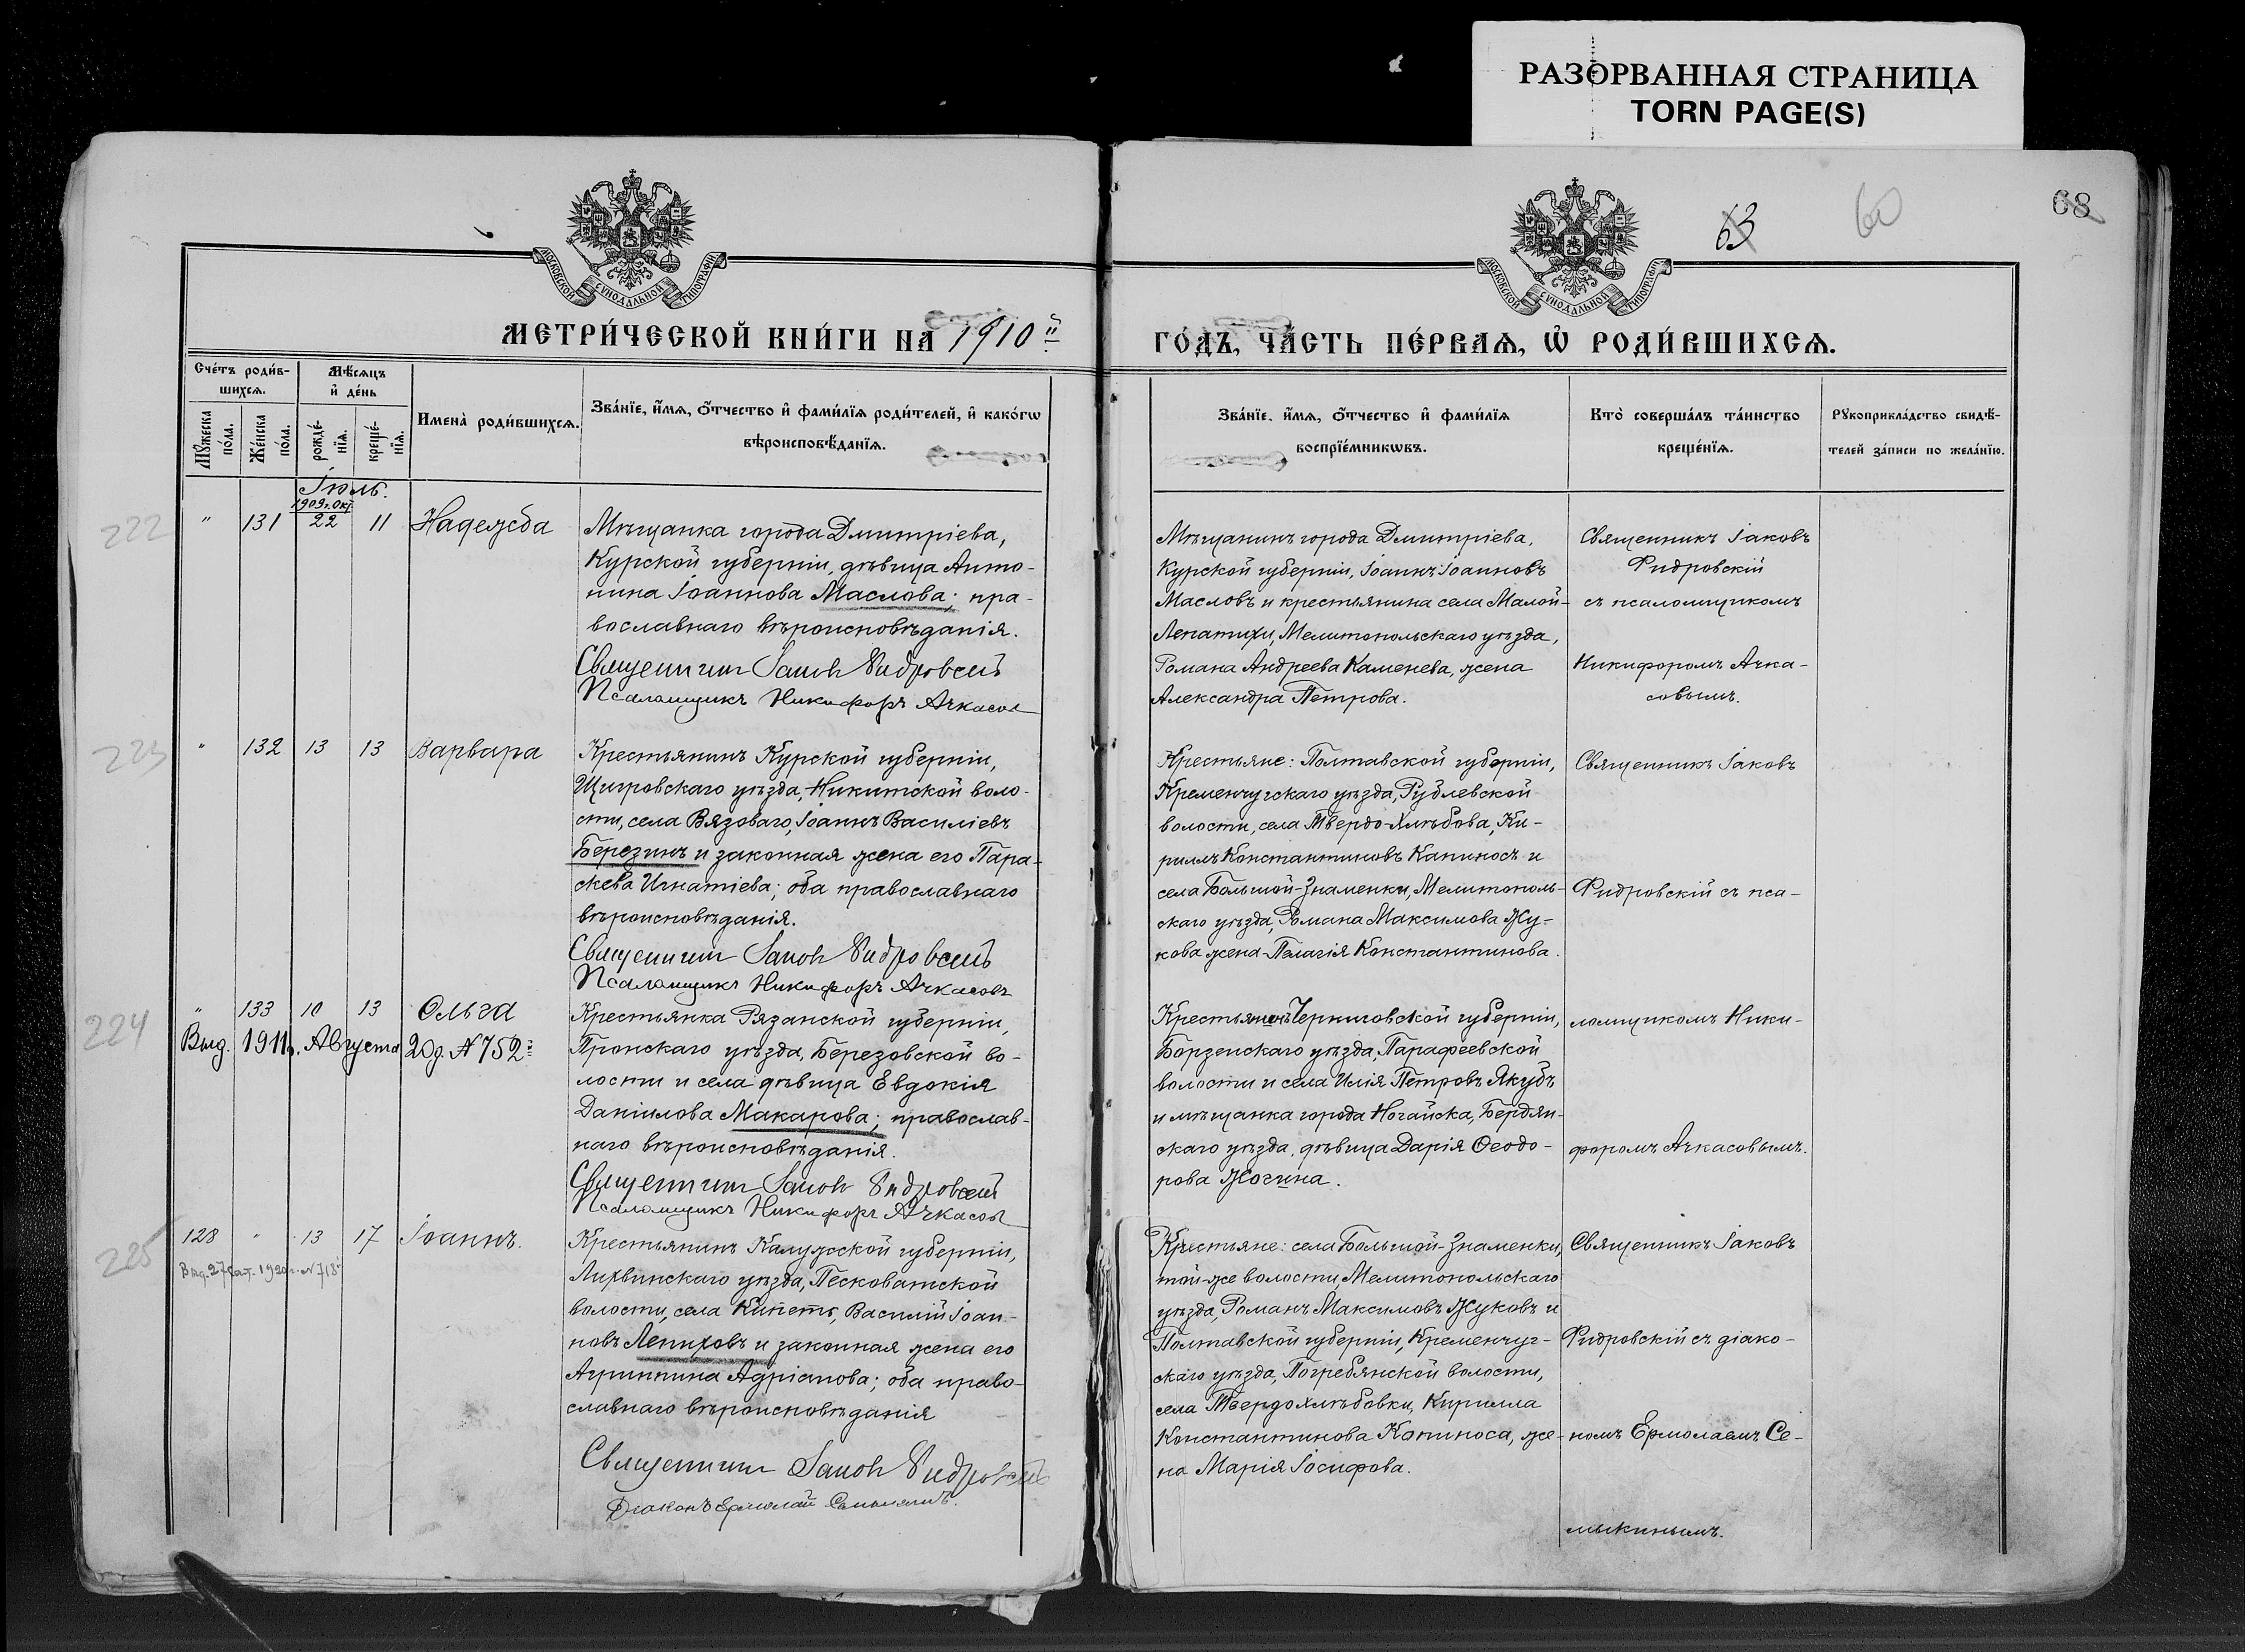 РАЗОРВАННАЯ СТРАНИЦА
TORN PAGE(S)
63
60
68
МОСКОВСКОЙ СУНОДАЛЬНОЙ ТИПОГРАФІИ
МОСКОВСКОЙ СУНОДАЛЬНОЙ ТИПОГРАФІИ
МЕТРИ́ЧЕСКОЙ КНИ́ГИ НА 1910й
ГО́ДЪ, ЧА́СТЬ ПЕ́РВАѦ, Ѡ҆ РОДИ́ВШИХСѦ.
Сче́тъ роди́в-
шихсѧ.
Мѣ́сѧцъ
и҆ де́нь
Мꙋ́жеска
по́ла.
Же́нска
по́ла.
рожде́-
нїѧ.
креще́-
нїѧ.
Имена̀ роди́вшихсѧ.
Зва́нїе, и҆́мѧ, ѻ҆́тчество и҆ фами́лїѧ роди́телей, и҆ како́гѡ
вѣроисповѣ́данїѧ.
Зва́нїе, и҆́мѧ, ѻ҆́тчество и҆ фами́лїѧ
воспрїе́мникѡвъ.
Кто̀ соверша́лъ та́инство
креще́нїѧ.
Рꙋкоприкла́дство свидѣ́-
телей за́писи по жела́нїю.
Іюль.
1909 г. Окт.
222
" 131 22 11 Надежда
Мѣщанка города Дмитріева,
Курской губерніи, дѣвица Анто-
нина Іоаннова Маслова; пра-
вославнаго вѣроисповѣданія.
Священникъ Іаковъ Фидровскій
Псаломщикъ Никифоръ Ачкасов
Мѣщанинъ города Дмитріева,
Курской губерніи, Іоаннъ Іоанновъ
Масловъ и крестьянина села Малой-
Лепатихи, Мелитопольскаго уѣзда,
Романа Андреева Каменева, жена
Александра Петрова.
Священникъ Іаковъ
Фидровскій
съ псаломщикомъ
Никифоромъ Ачка-
совымъ.
223
" 132 13 13 Варвара
Крестьянинъ Курской губерніи,
Щигровскаго уѣзда, Никитской воло-
сти, села Вязоваго, Іоаннъ Василіевъ
Березинъ и законная жена его Пара-
скева Игнатіева; оба православнаго
вѣроисповѣданія.
Священникъ Іаковъ Фидровскій
Псаломщикъ Никифоръ Ачкасовъ
Крестьяне: Полтавской губерніи,
Кременчугскаго уѣзда, Рублевской
волости, села Твердо-Хлѣбова, Ки-
риллъ Константиновъ Капиносъ и
села Большой-Знаменки, Мелитополь-
скаго уѣзда, Романа Максимова Жу-
кова жена Пелагія Константинова.
Священникъ Іаковъ
Фидровскій съ пса-
224
" 133 10 13 Ольга
Выд. 1911 г. Августа 20 д. № 752й
Крестьянка Рязанской губерніи,
Пронскаго уѣзда, Березовской во-
лости и села дѣвица Евдокія
Даніилова Макарова; православ-
наго вѣроисповѣданія.
Священникъ Іаковъ Фидровскій
Псаломщикъ Никифоръ Ачкасов
Крестьянинъ Черниговской губерніи,
Борзенскаго уѣзда, Парафеевской
волости и села Илія Петровъ Якубъ
и мѣщанка города Ногайска, Бердян-
скаго уѣзда, дѣвица Дарія Ѳеодо-
рова Жогина.
ломщикомъ Ники-
форомъ Ачкасовымъ.
225
128 " 13 17 Іоаннъ.
Выд. 27 1920 г. № 718
Крестьянинъ Калужской губерніи,
Лихвинскаго уѣзда, Песковатской
волости, села Кипеть, Василій Іоан-
новъ Лепиховъ и законная жена его
Агриппина Адріанова; оба право-
славнаго вѣроисповѣданія
Священникъ Іаковъ Фидровскій
Діаконъ Ермолай
Крестьяне: села Большой-Знаменки,
той-же волости, Мелитопольскаго
уѣзда, Романъ Максимовъ Жуковъ и
Полтавской губерніи, Кременчуг-
скаго уѣзда, Погребянской волости,
села Твердохлѣбовки, Кирилла
Константинова Копиноса, же-
на Марія Іосифова.
Священникъ Іаковъ
Фидровскій съ діако-
номъ Ермолаемъ Се-
мыкинымъ.